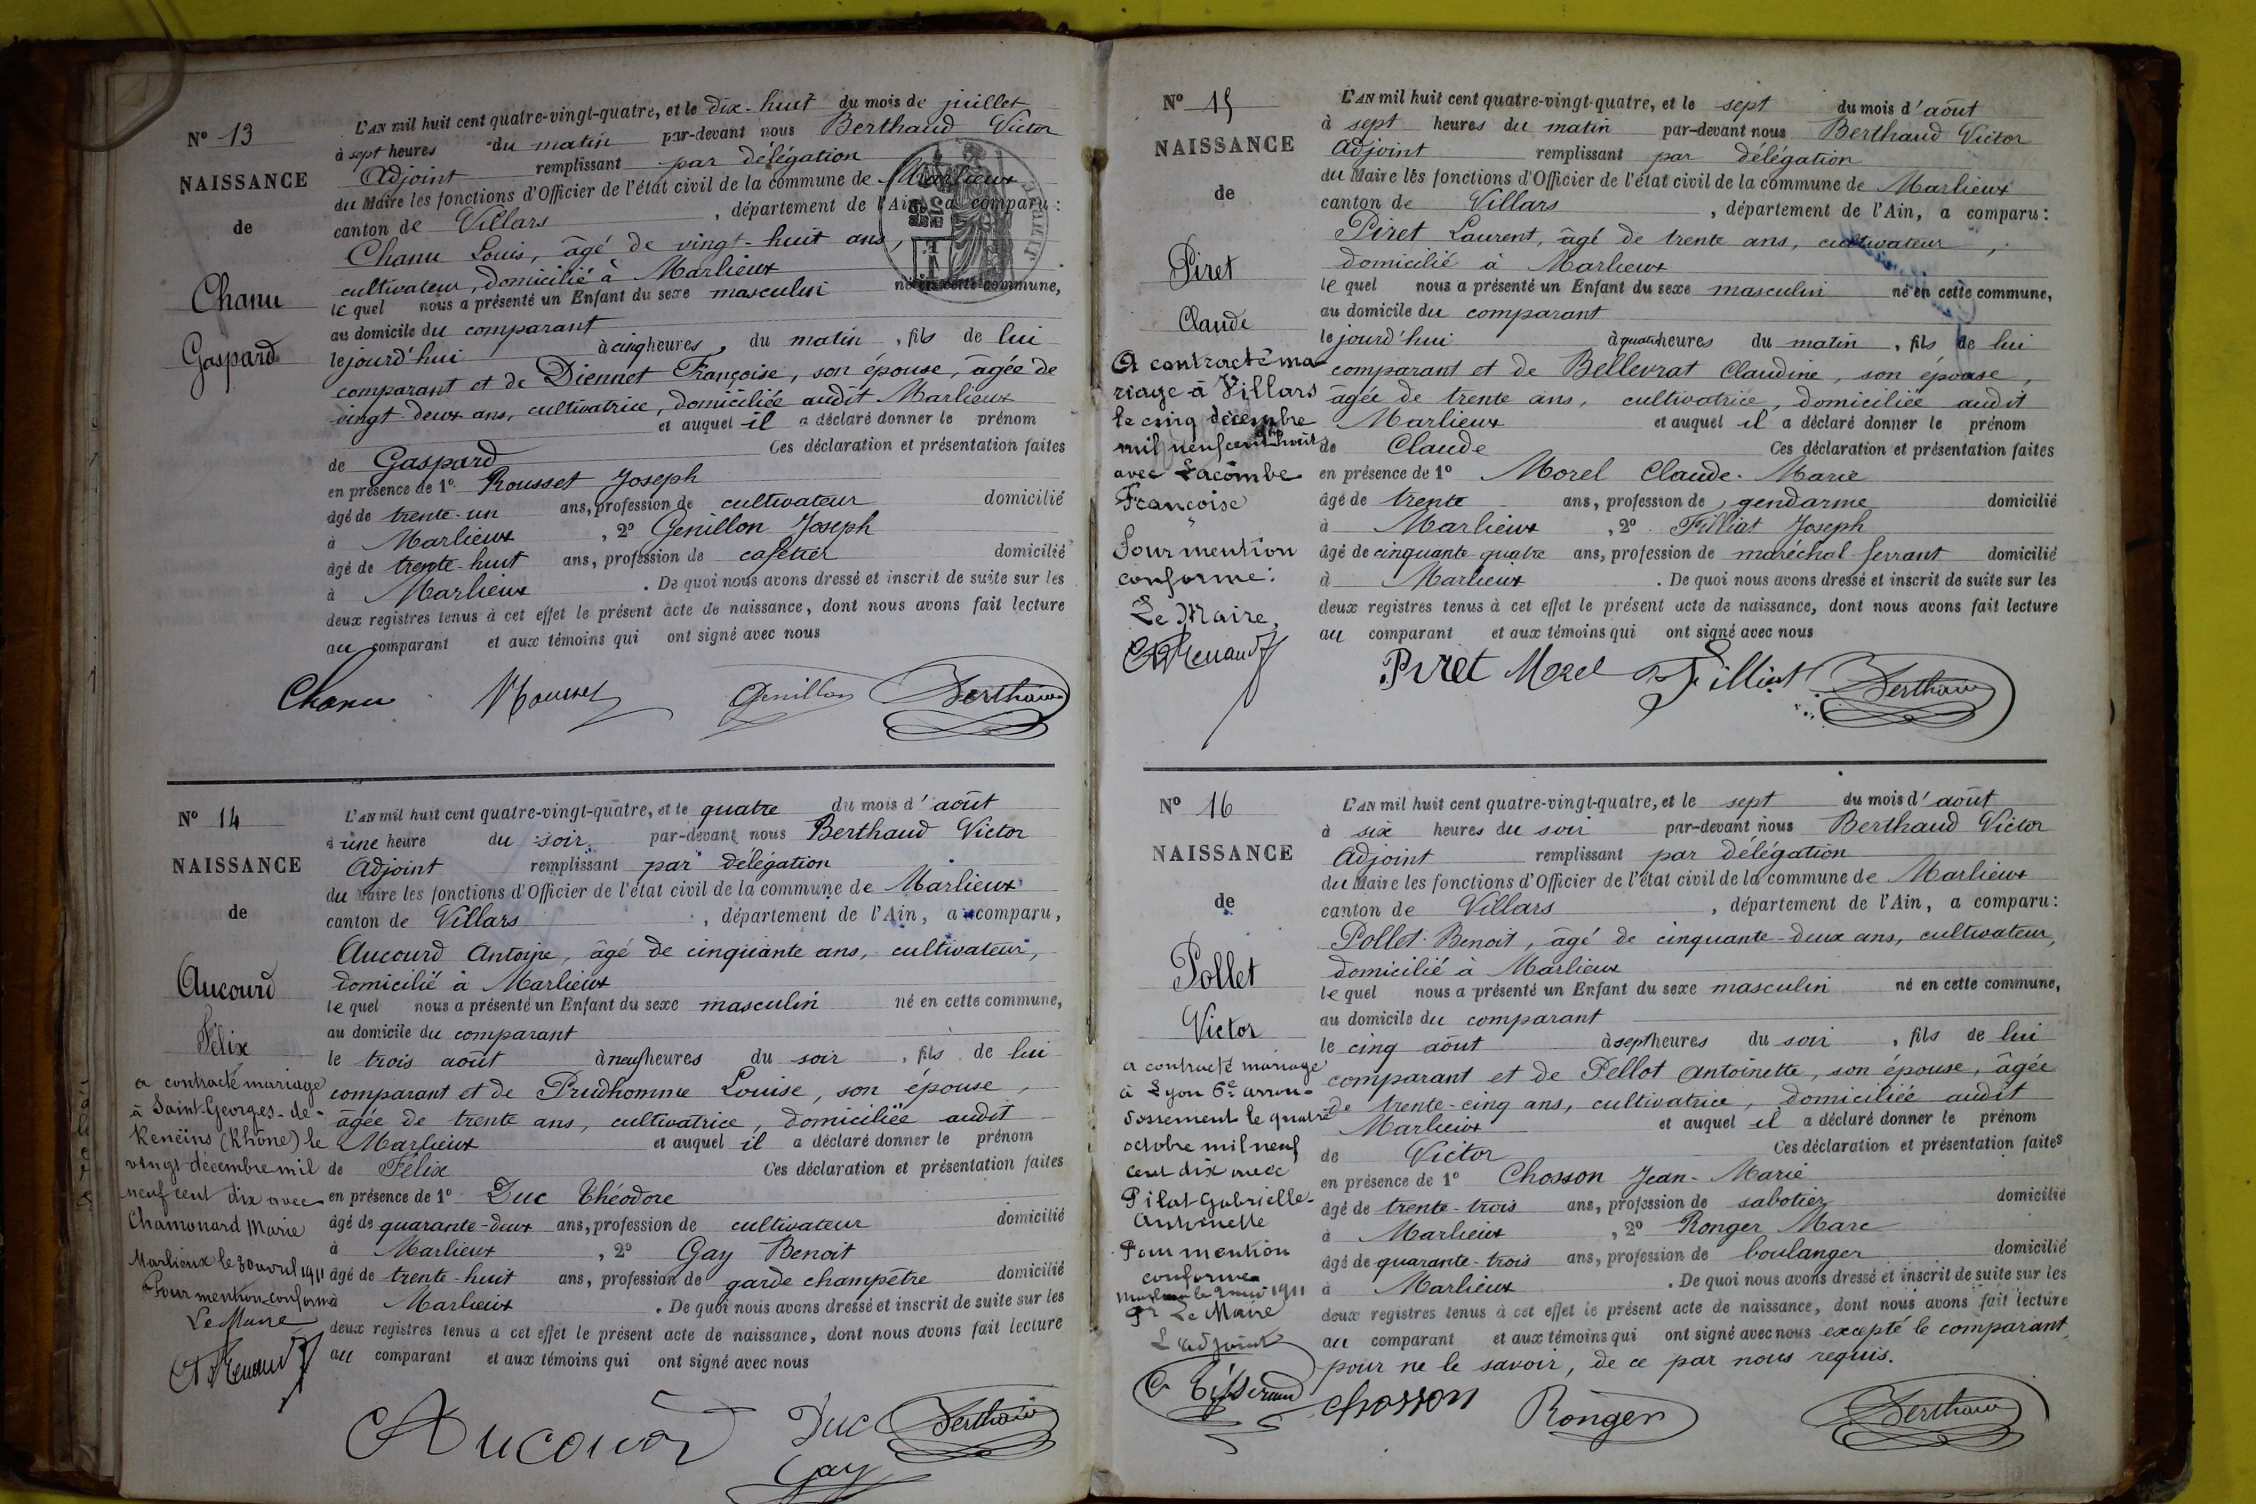 N° 13
NAISSANCE
de
Chanu
Gaspard
L'AN mil huit cent quatre-vingt-quatre, et le dix-huit du mois de juillet
à sept heures du matin par-devant nous Berthaud Victor
Adjoint remplissant par délégation
du Maire les fonctions d'Officier de l'état civil de la commune de Marlieux
canton de Villars, département de l'Ain, a comparu:
Chanu Louis, âgé de vingt-huit ans,
cultivateur, domicilié à Marlieux
lequel nous a présenté un Enfant du sexe masculin né en cette commune,
au domicile du comparant
le jourd'hui à cinq heures, du matin, fils de lui
comparant et de Diennet Françoise, son épouse, âgée de
vingt-deux ans, cultivatrice, domiciliée audit Marlieux
et auquel il a déclaré donner le prénom
de Gaspard Ces déclaration et présentation faites
en présence de 1° Rousset Joseph
âgé de trente-un ans, profession de cultivateur domicilié
à Marlieux, 2° Genillon Joseph
âgé de trente-huit ans, profession de cafetier domicilié
à Marlieux. De quoi nous avons dressé et inscrit de suite sur les
deux registres tenus à cet effet le présent acte de naissance, dont nous avons fait lecture
au comparant et aux témoins qui ont signé avec nous
Chanu Rousset Genillon Berthaud
N° 14
NAISSANCE
de
Aucourd
Félix
a contracté mariage
à Saint-Georges-de-
Reneins (Rhône) le
vingt décembre mil
neuf cent dix avec
Chamonard Marie
Marlieux le 30 avril 1911
Pour mention conforme
Le Maire
L'AN mil huit cent quatre-vingt-quatre, et le quatre du mois d'août
à une heure du soir par-devant nous Berthaud Victor
Adjoint remplissant par délégation
du Maire les fonctions d'Officier de l'état civil de la commune de Marlieux
canton de Villars, département de l'Ain, a comparu,
Aucourd Antoine, âgé de cinquante ans, cultivateur,
domicilié à Marlieux
lequel nous a présenté un Enfant du sexe masculin né en cette commune,
au domicile du comparant
le trois août à neuf heures du soir, fils de lui
comparant et de Prudhomme Louise, son épouse,
âgée de trente ans, cultivatrice, domiciliée audit
Marlieux et auquel il a déclaré donner le prénom
de Félix Ces déclaration et présentation faites
en présence de 1° Duc Théodore
âgé de quarante-deux ans, profession de cultivateur domicilié
à Marlieux, 2° Gay Benoit
âgé de trente-huit ans, profession de garde champêtre domicilié
à Marlieux. De quoi nous avons dressé et inscrit de suite sur les
deux registres tenus à cet effet le présent acte de naissance, dont nous avons fait lecture
au comparant et aux témoins qui ont signé avec nous
Aucourd Duc Berthaud
Gay
N° 15
NAISSANCE
de
Piret
Claude
A contracté ma-
riage à Villars
le cinq décembre
mil neuf cent huit
avec Lacombe
Françoise
Pour mention
conforme:
Le Maire,
L'AN mil huit cent quatre-vingt-quatre, et le sept du mois d'août
à sept heures du matin par-devant nous Berthaud Victor
Adjoint remplissant par délégation
du Maire les fonctions d'Officier de l'état civil de la commune de Marlieux
canton de Villars, département de l'Ain, a comparu:
Piret Laurent, âgé de trente ans, cultivateur,
domicilié à Marlieux
lequel nous a présenté un Enfant du sexe masculin né en cette commune,
au domicile du comparant
le jourd'hui à quatre heures du matin, fils de lui
comparant et de Bellevrat Claudine, son épouse,
âgée de trente ans, cultivatrice, domiciliée audit
Marlieux et auquel il a déclaré donner le prénom
de Claude Ces déclaration et présentation faites
en présence de 1° Morel Claude-Marie
âgé de trente ans, profession de gendarme domicilié
à Marlieux, 2° Filliat Joseph
âgé de cinquante-quatre ans, profession de maréchal-ferrant domicilié
à Marlieux. De quoi nous avons dressé et inscrit de suite sur les
deux registres tenus à cet effet le présent acte de naissance, dont nous avons fait lecture
au comparant et aux témoins qui ont signé avec nous
Piret Morel Filliat Berthaud
N° 16
NAISSANCE
de
Pollet
Victor
a contracté mariage
à Lyon 6e arron-
dissement le quatre
octobre mil neuf
cent dix avec
Pilat Gabrielle-
Antoinette
Pour mention
conforme
Marlieux le 2 mai 1911
Pr Le Maire
L'adjoint
L'AN mil huit cent quatre-vingt-quatre, et le sept du mois d'août
à six heures du soir par-devant nous Berthaud Victor
Adjoint remplissant par délégation
du Maire les fonctions d'Officier de l'état civil de la commune de Marlieux
canton de Villars, département de l'Ain, a comparu:
Pollet Benoit, âgé de cinquante-deux ans, cultivateur,
domicilié à Marlieux
lequel nous a présenté un Enfant du sexe masculin né en cette commune,
au domicile du comparant
le cinq août à sept heures du soir, fils de lui
comparant et de Pellot Antoinette, son épouse, âgée
de trente-cinq ans, cultivatrice, domiciliée audit
Marlieux et auquel il a déclaré donner le prénom
de Victor Ces déclaration et présentation faites
en présence de 1° Chosson Jean-Marie
âgé de trente-trois ans, profession de sabotier domicilié
à Marlieux, 2° Ronger Marc
âgé de quarante-trois ans, profession de boulanger domicilié
à Marlieux. De quoi nous avons dressé et inscrit de suite sur les
deux registres tenus à cet effet le présent acte de naissance, dont nous avons fait lecture
au comparant et aux témoins qui ont signé avec nous excepté le comparant,
pour ne le savoir, de ce par nous requis.
Chosson Ronger Berthaud